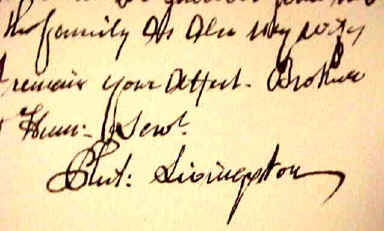 the family as also my
remain your Affect. Brother
Hum. Servt.
Phil: Livingston